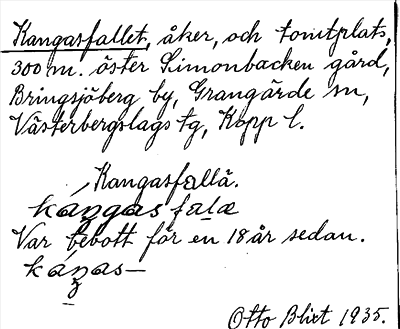 Kangasfallet, åker, och tomtplats,
300 m. öster Simonbacken gård,
Bringsjöberg by, Grangärde sn,
Västerbergslags tg, Kopp l.
Kangasfallä.
kaŋgas falæ
Var bebott för en 18 år sedan.
kaŋas—
Otto Blixt 1935.